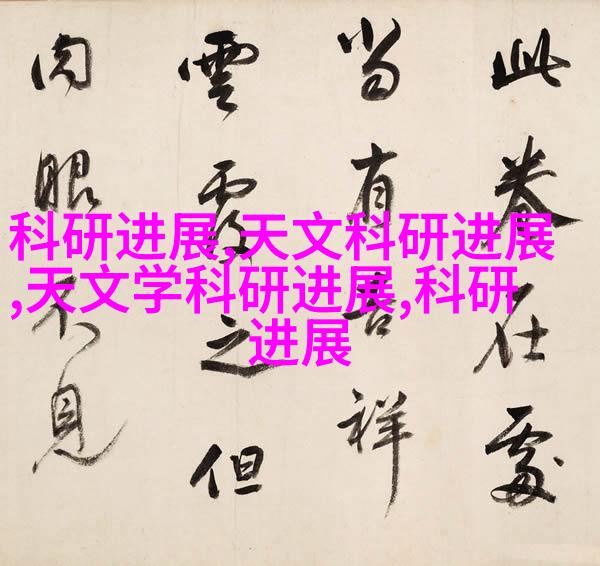 此卷在處
当有吉祥
雲覆之但
肉眼不見
科研进展,天文科研进展
,天文学科研进展,科研
进展